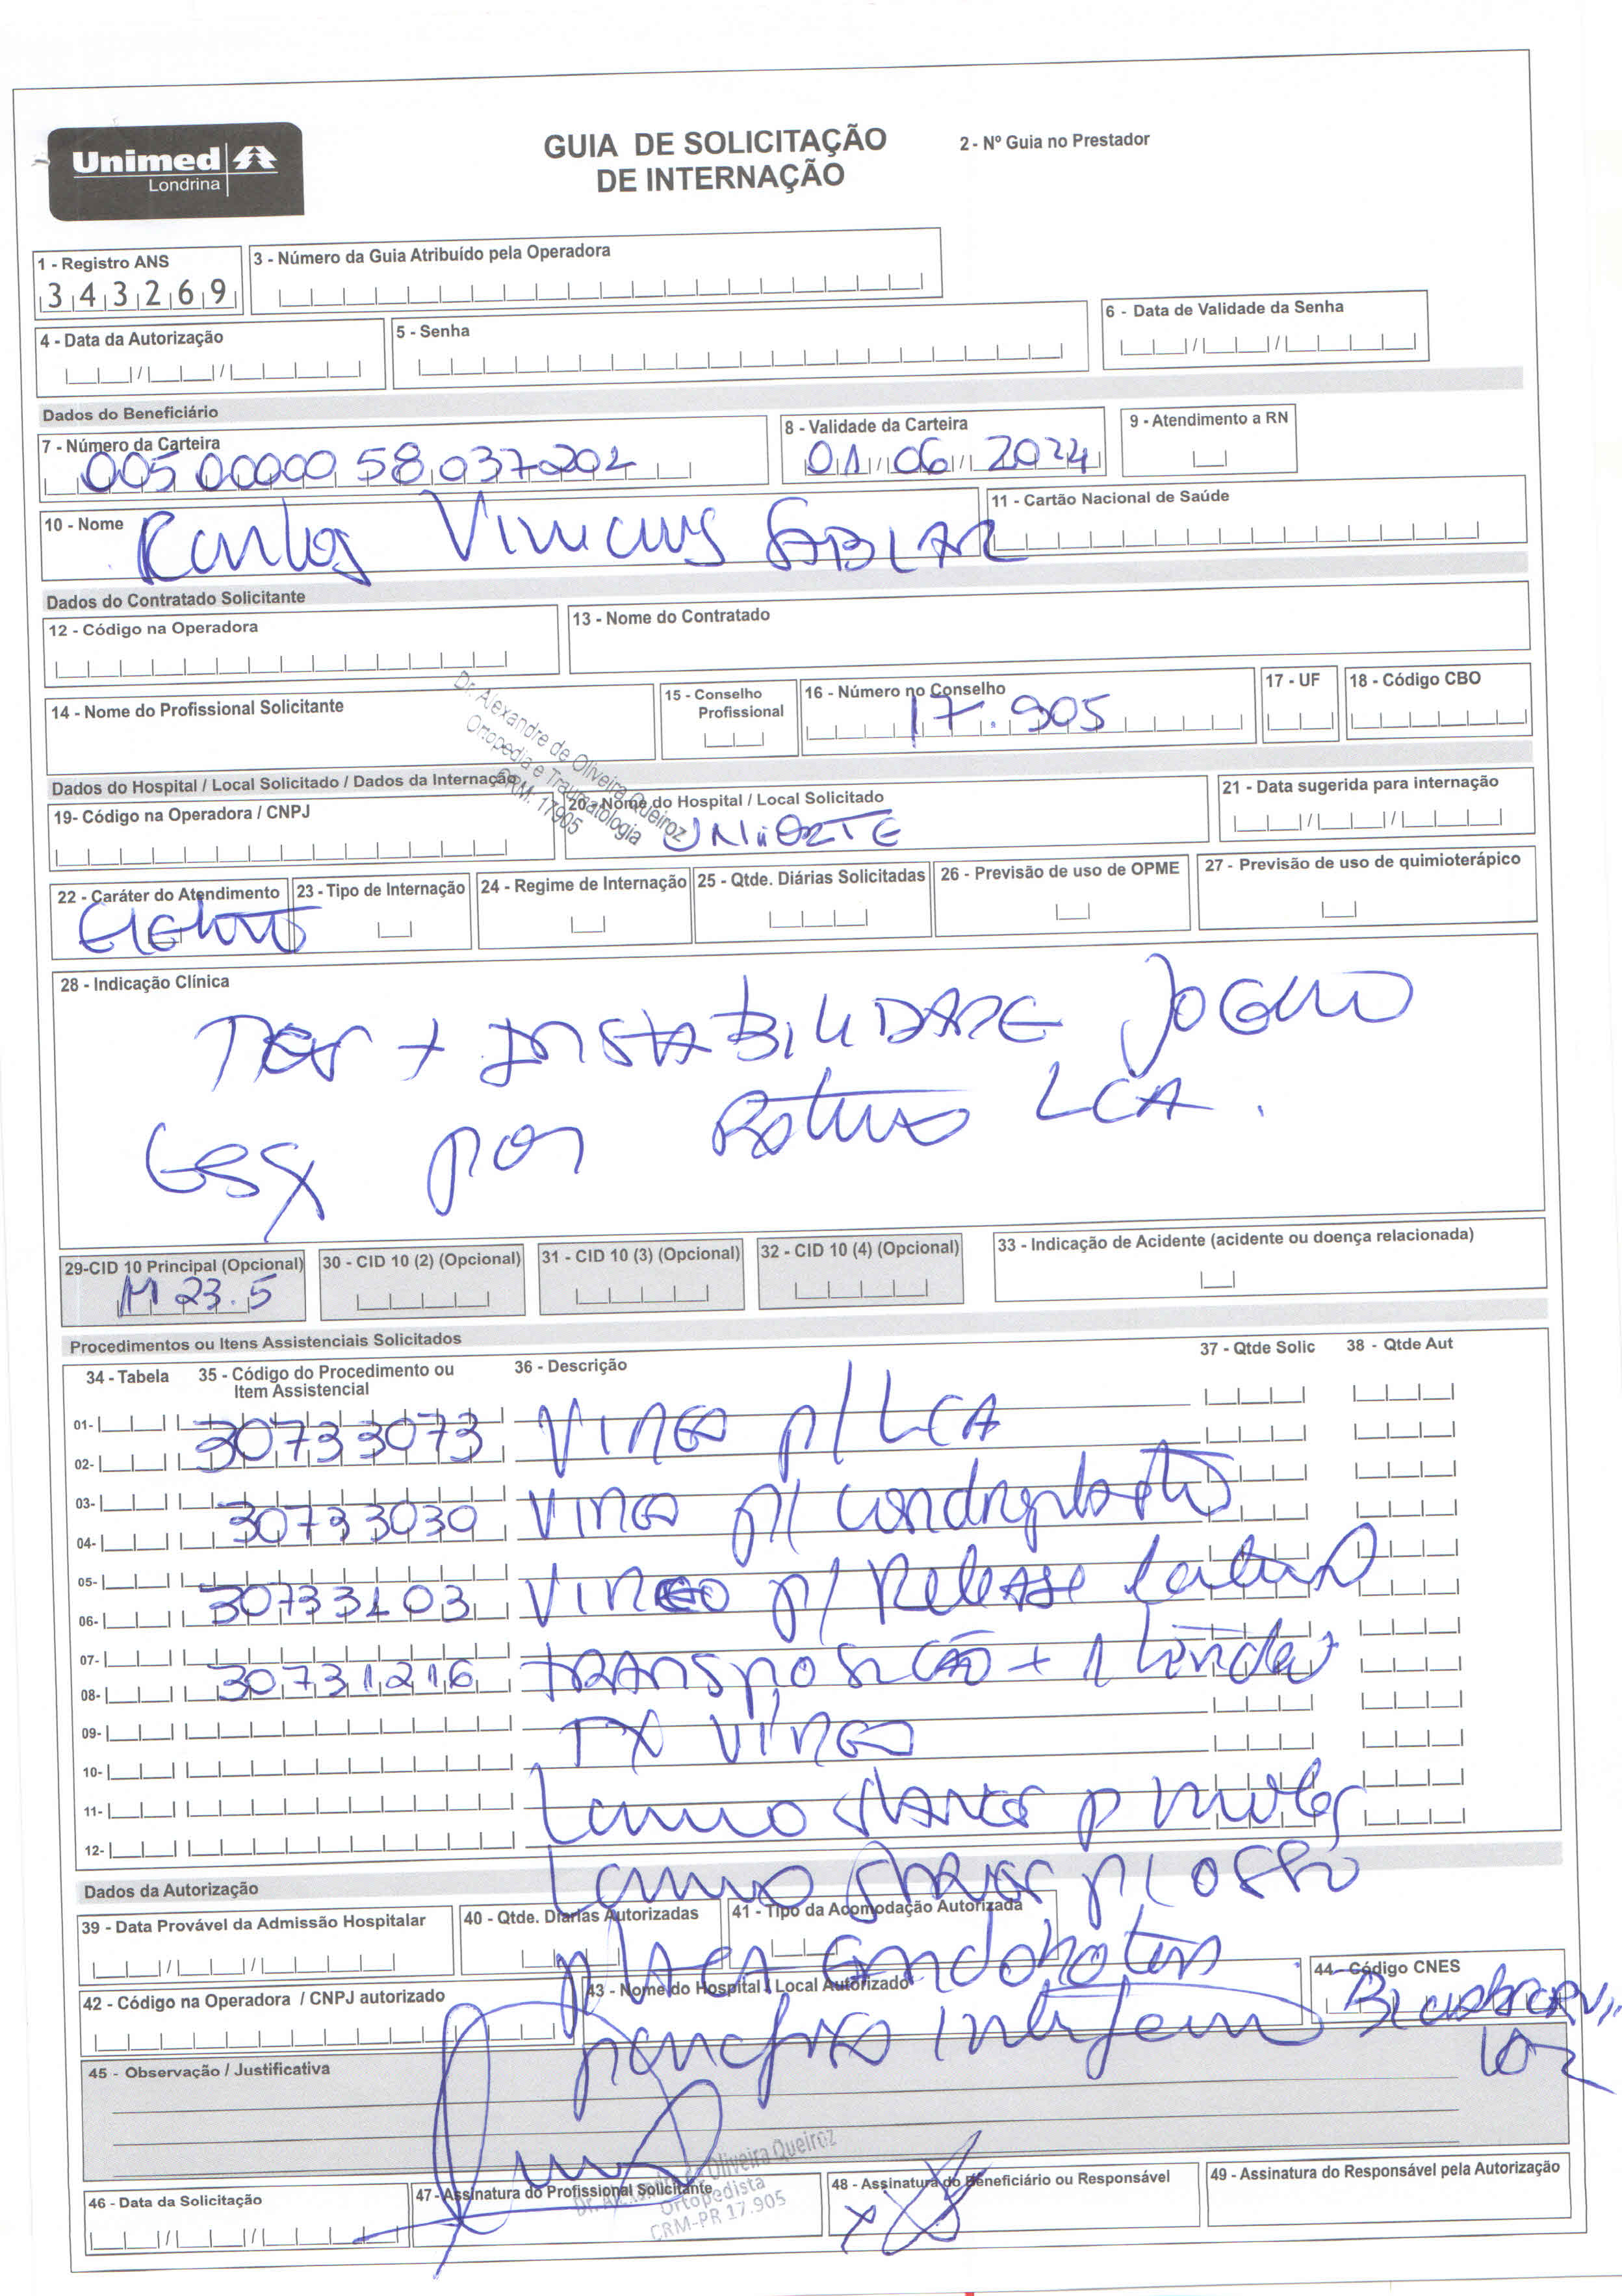 Unimed
Londrina
GUIA DE SOLICITAÇÃO
DE INTERNAÇÃO
2 - Nº Guia no Prestador
1 - Registro ANS
343269
3 - Número da Guia Atribuído pela Operadora
4 - Data da Autorização
5 - Senha
6 - Data de Validade da Senha
Dados do Beneficiário
7 - Número da Carteira
005 00000 58 037202
8 - Validade da Carteira
01 06 2024
9 - Atendimento a RN
10 - Nome
Vinicius
11 - Cartão Nacional de Saúde
Dados do Contratado Solicitante
12 - Código na Operadora
13 - Nome do Contratado
14 - Nome do Profissional Solicitante
Dr. Alexandre de Oliveira Queiroz
Ortopedia e Traumatologia
CRM: 17905
15 - Conselho Profissional
16 - Número no Conselho
17.905
17 - UF
18 - Código CBO
Dados do Hospital / Local Solicitado / Dados da Internação
19- Código na Operadora / CNPJ
20 - Nome do Hospital / Local Solicitado
21 - Data sugerida para internação
22 - Caráter do Atendimento
23 - Tipo de Internação
24 - Regime de Internação
25 - Qtde. Diárias Solicitadas
26 - Previsão de uso de OPME
27 - Previsão de uso de quimioterápico
28 - Indicação Clínica
+ INSTABILIDADE JOELHO
Esq por LCA.
29-CID 10 Principal (Opcional)
M 23.5
30 - CID 10 (2) (Opcional)
31 - CID 10 (3) (Opcional)
32 - CID 10 (4) (Opcional)
33 - Indicação de Acidente (acidente ou doença relacionada)
Procedimentos ou Itens Assistenciais Solicitados
34 - Tabela
35 - Código do Procedimento ou Item Assistencial
36 - Descrição
37 - Qtde Solic
38 - Qtde Aut
01-
30733073 VIDEO p/ LCA
02-
03-
30733030 VIDEO p/ condroplastia
04-
05-
30733103 VIDEO p/ Release lateral
06-
07-
30731216 TRANSPOSIÇÃO + 1 tendão
08-
09-
TX VIDEO
10-
11-
Lamina SHAVER p
12-
Lamina SHAVER p/ osso
Dados da Autorização
39 - Data Provável da Admissão Hospitalar
40 - Qtde. Diárias Autorizadas
41 - Tipo da Acomodação Autorizada
PLACA Endoboton
42 - Código na Operadora / CNPJ autorizado
43 - Nome do Hospital / Local Autorizado
44 - Código CNES
parafuso
45 - Observação / Justificativa
46 - Data da Solicitação
47 - Assinatura do Profissional Solicitante
Dr. Alexandre de Oliveira Queiroz
Ortopedista
CRM-PR 17.905
48 - Assinatura do Beneficiário ou Responsável
49 - Assinatura do Responsável pela Autorização